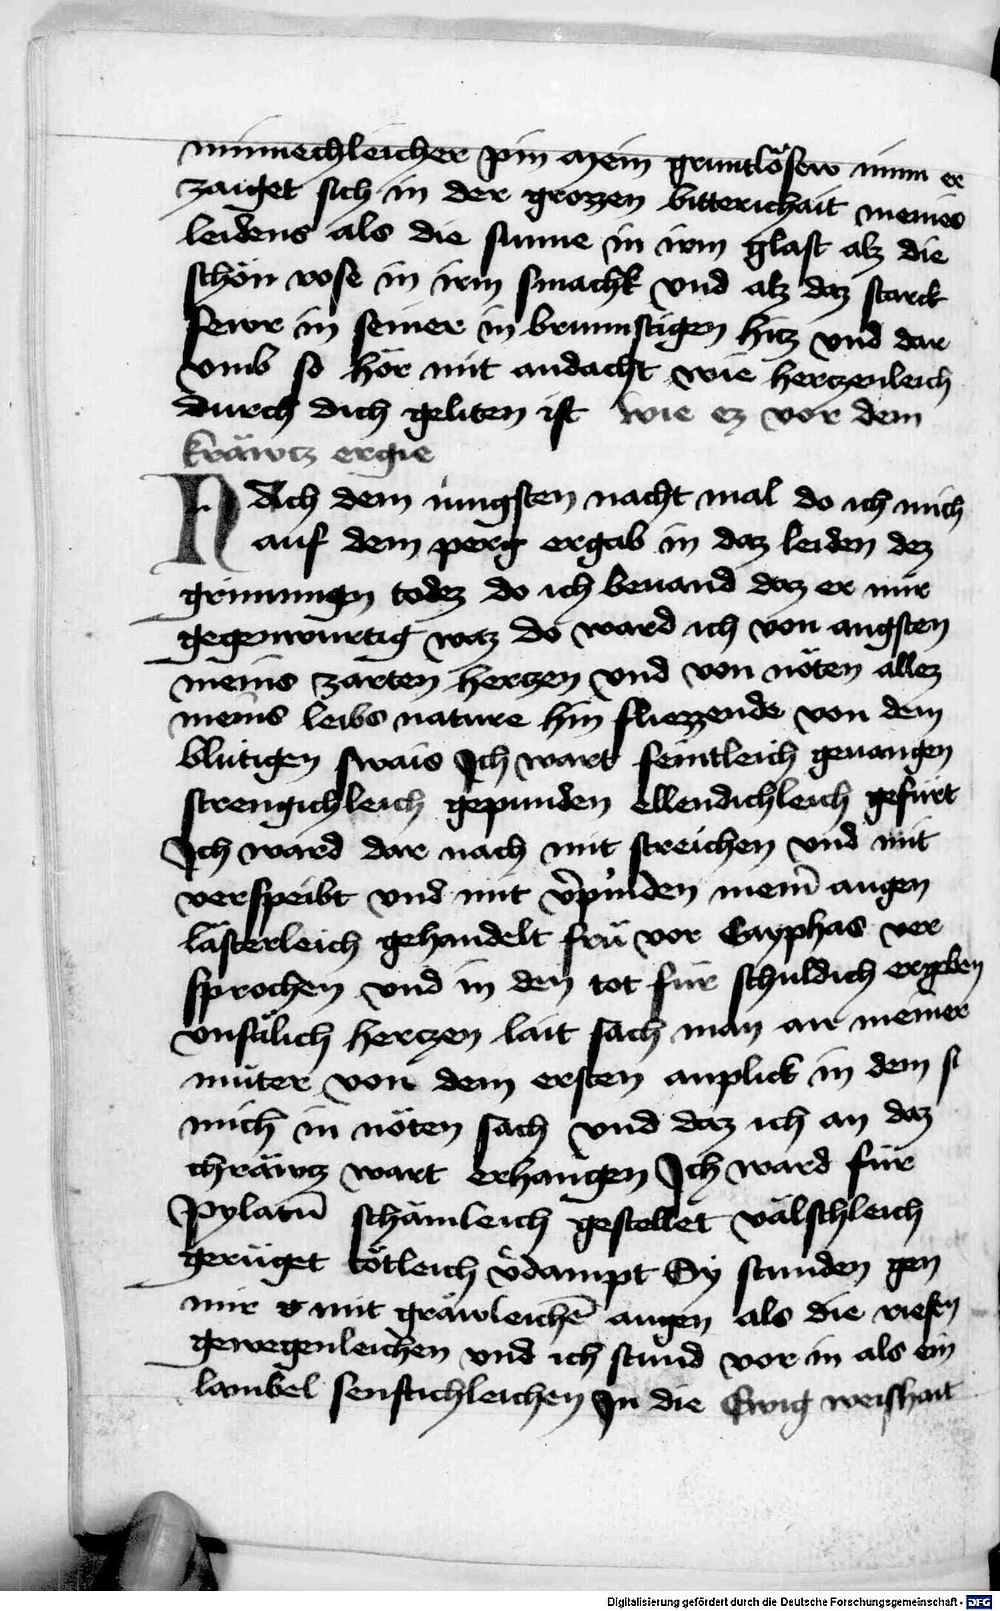 minnechleicher pin Mein gruntlösew minn er
zaiget sich in der grozzen bitterichait meines
leidens als die sunne in irm glast alz die
schön rose in irm smachk vnd alz daz starck
fewr in seiner inbrunnstigen hitz vnd dar
vmb so hör mit andacht wie hertzenleich
durch dich geliten ist Wie ez vor dem
kräwtz ergie
NAch dem iungsten nacht mal do ich mich
auf dem perg ergab in daz leiden dez
grimmigen todez do ich beuand daz er mir
gegenwurtig waz do ward ich von angsten
meins zarten hertzen vnd von nöten allez
meins leibs nature hin fliezzende von dem
blütigen swais Ich wart feintleich geuangen
strengichleich gepunden ellendichleich gefürt
Ich ward dar nach mit streichen vnd mit
verspeibt vnd mit v̄pinden meiñ augen
lästerleich gehandelt frü vor Cayphas ver
sprochen vnd in den tot für schuldich ergeben
vnsälich hertzen lait sach man an meiner
müter von dem ersten anplick in dem si
mich in nöten sach vnd daz ich an daz
chräwtz wart erhangen Ich ward für
Pylatū schämleich gestellet välschleich
gerüget tötleich v̄dampt Sy stunden gen
mir mit gräwleichē augen als die risen
gewegenleichen vnd ich stund vor in als ein
lambel senftichleichen In die Ewig weishait
Digitalisierung gefördert durch die Deutsche Forschungsgemeinschaft - DFG